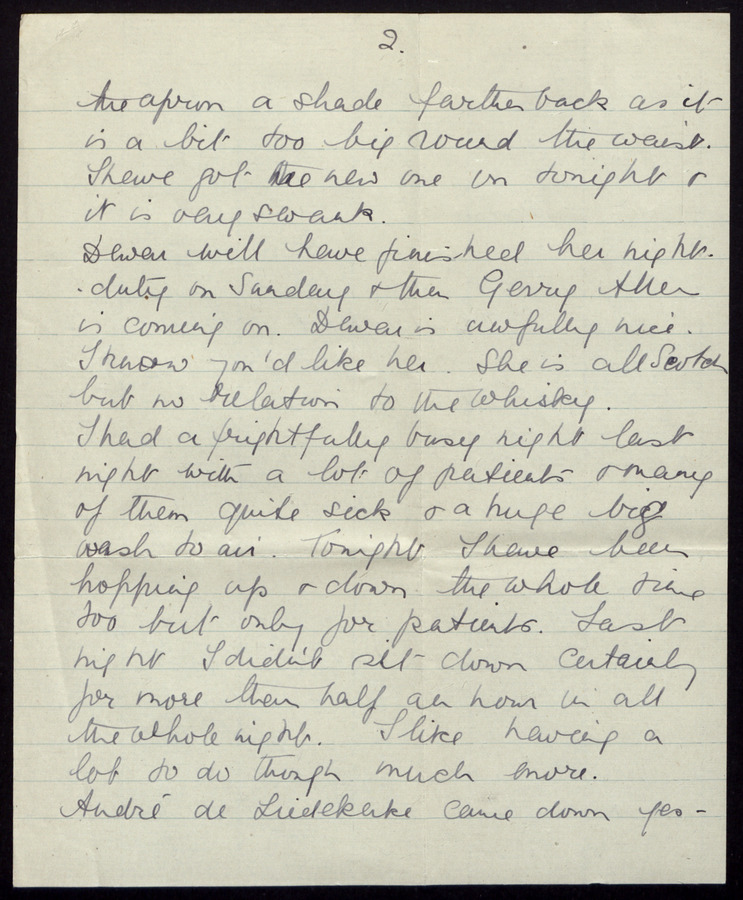 2.
the apron a shade farther back as it
is a bit too big round the waist.
I have got the new one on tonight &
it is very swank.
Dewar will have finished her night-
duty on Sunday & then Gerry Allen
is coming on. Dewar is awfully nice.
I know you'd like her. She is all Scotch
but no relation to the whiskey.
I had a frightfully busy night last
night with a lot of patients & many
of them quite sick & a huge big
wash to air. Tonight I have been
hopping up & down the whole time
too but only for patients. Last
night I didn't sit down certainly
for more than half an hour in all
the whole night. I like having a
lot to do though much more.
André de Liedekerke came down yes-